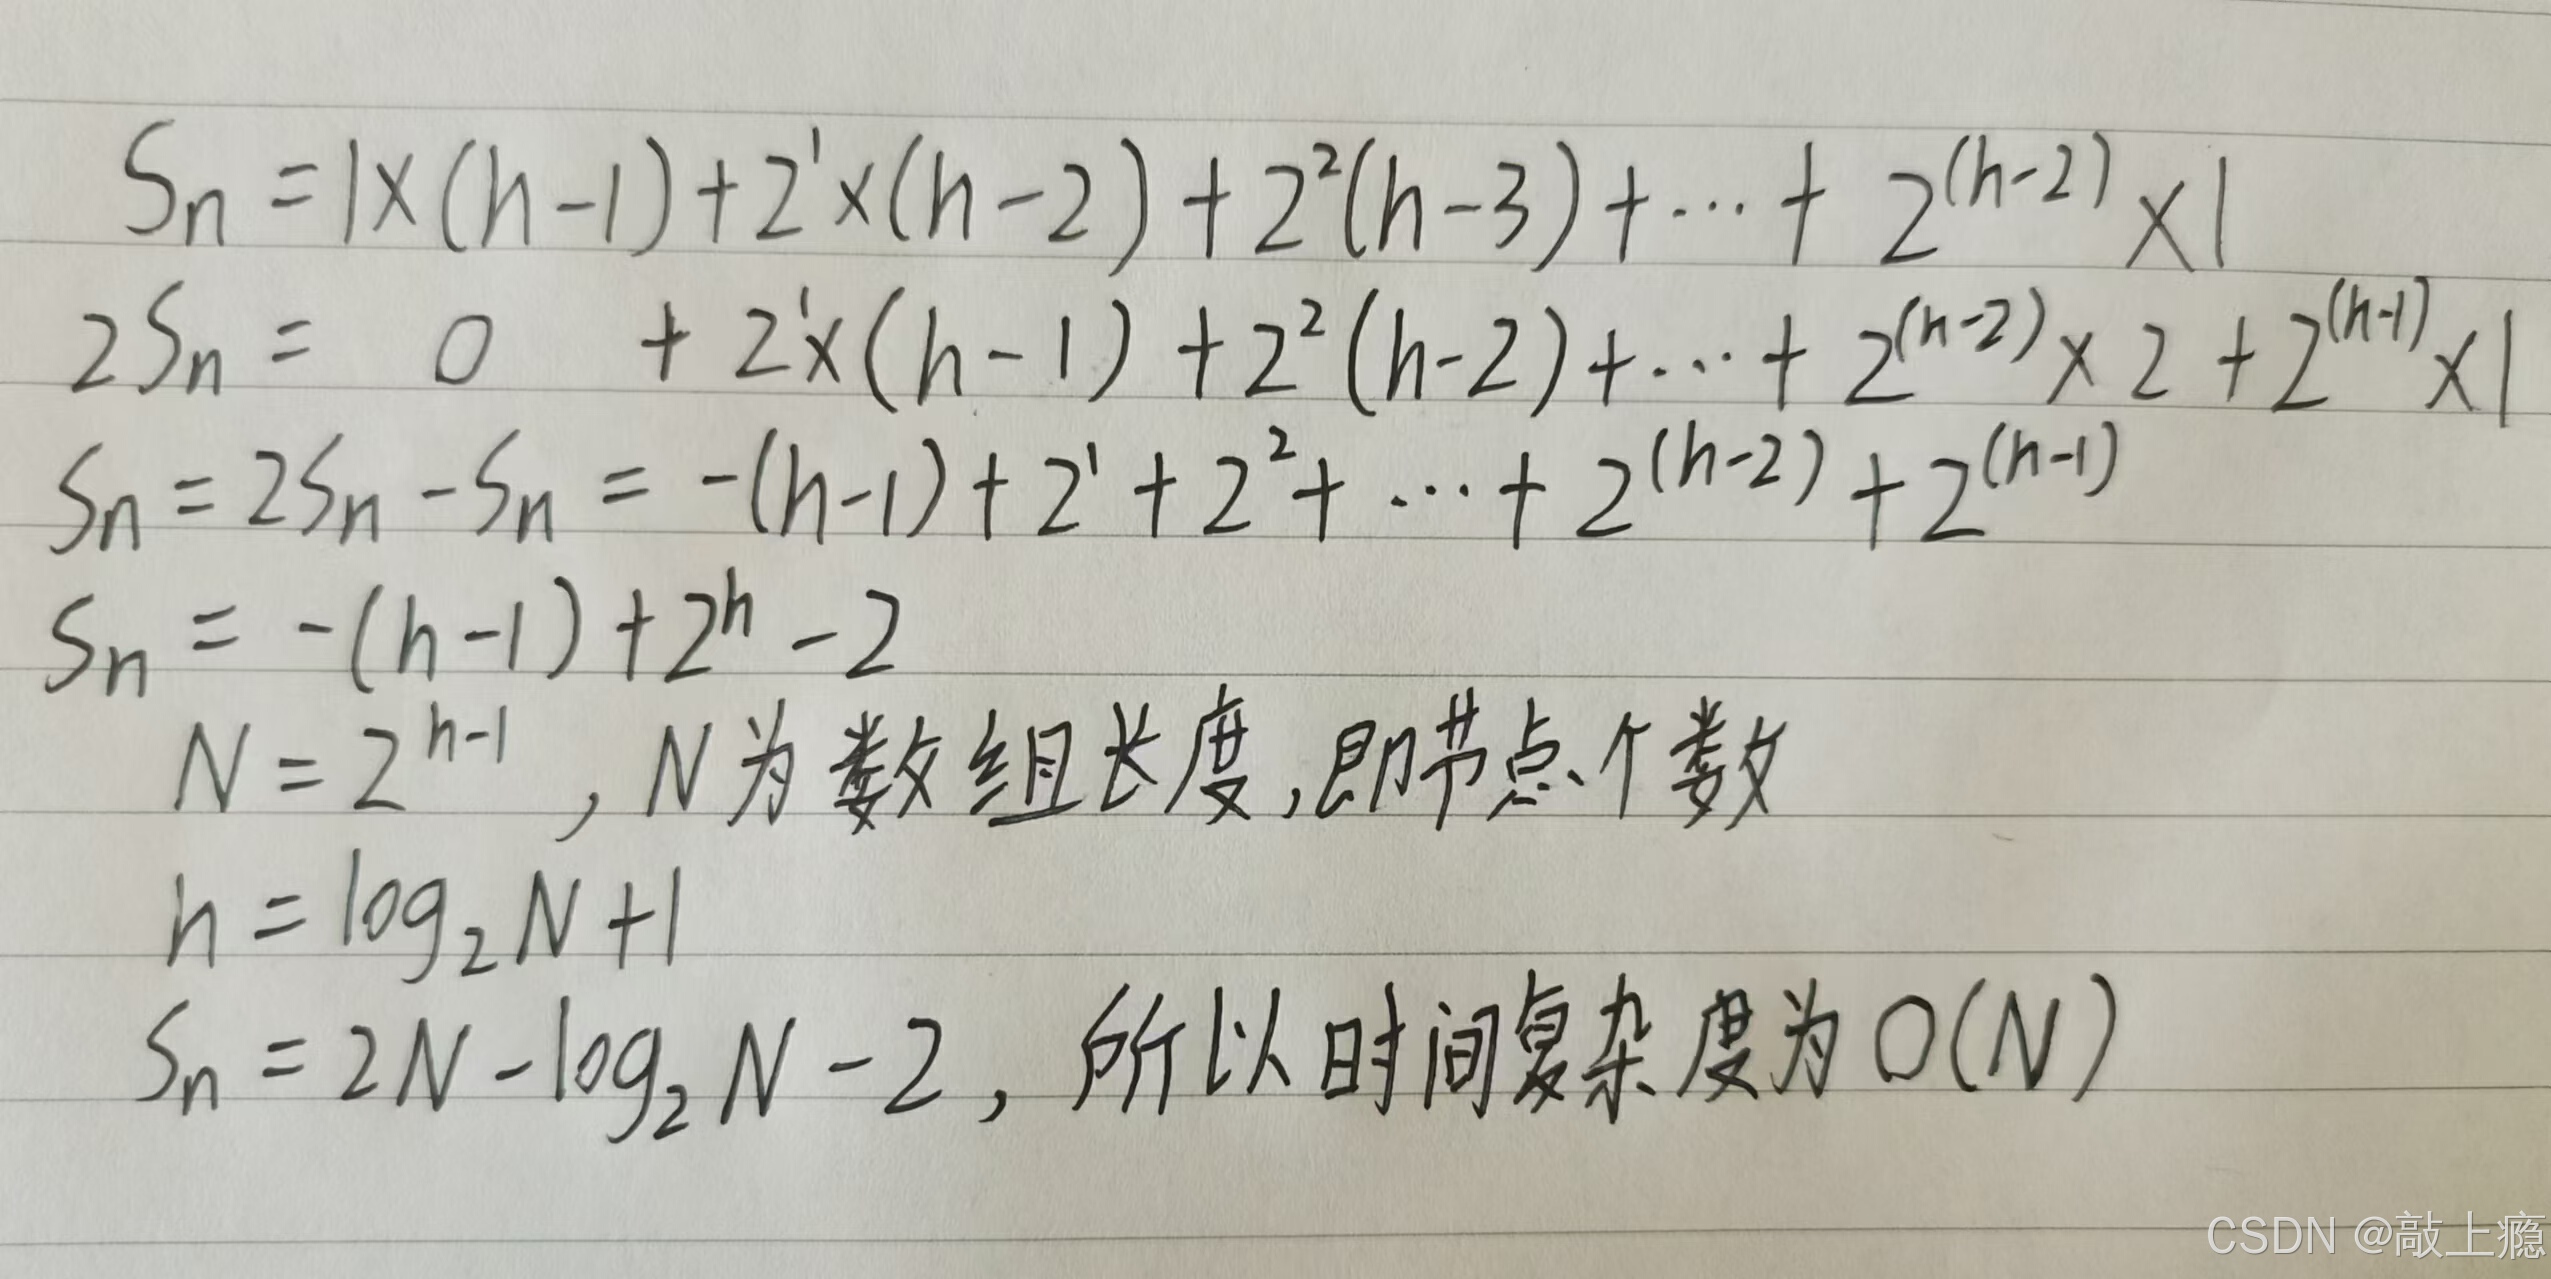 Sn = 1×(h-1)+2¹×(h-2)+2²(h-3)+…+2^(h-2)×1
2Sn = 0 + 2¹×(h-1)+2²(h-2)+…+2^(h-2)×2+2^(h-1)×1
Sn = 2Sn - Sn = -(h-1)+2¹+2²+…+2^(h-2)+2^(h-1)
Sn = -(h-1)+2^h-2
N = 2^h-1 , N为数组长度,即节点个数
h = log₂N+1
Sn = 2N-log₂N-2, 所以时间复杂度为O(N)
CSDN @敲上瘾